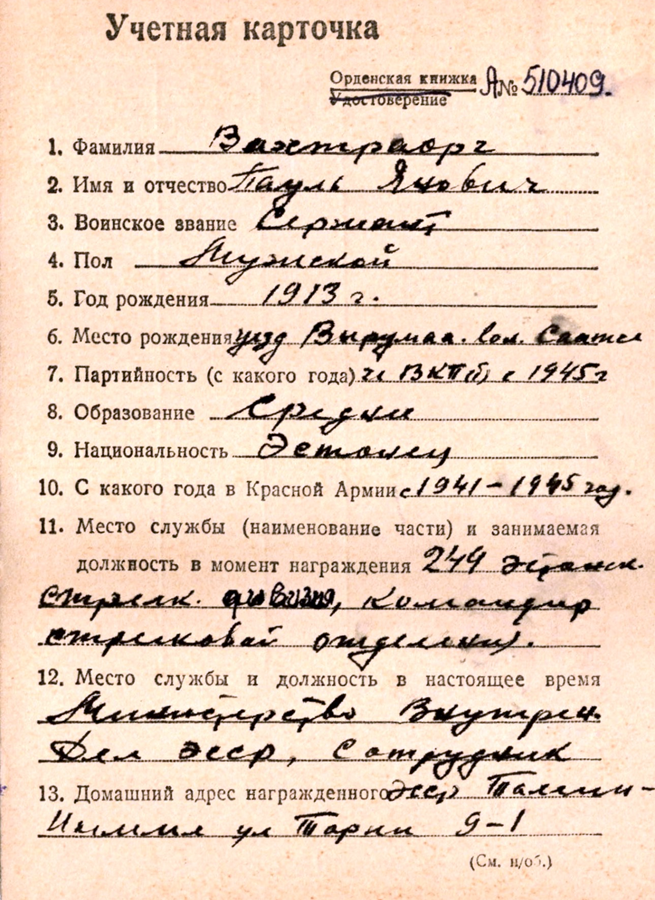 Учетная карточка
Орденская книжка А№ 510409.
Удостоверение
1. Фамилия
2. Имя и отчество Пауль Янович
3. Воинское звание Сержант
4. Пол Мужской
5. Год рождения 1913 г.
6. Место рождения уезд Вырумаа. вол.
7. Партийность (с какого года) чл ВКП(б) с 1945 г
8. Образование Средни
9. Национальность Эстонец
10. С какого года в Красной Армии с 1941 – 1945 год.
11. Место службы (наименование части) и занимаемая
должность в момент награждения 249 Эстонск.
Стрелк. дивизия, командир
стрелковой отделения.
12. Место службы и должность в настоящее время
Министерство Внутрен.
Дел ЭССР, Сотрудник
13. Домашний адрес награжденного ЭССР Таллин-
ул 9-1
(См. н/об.)